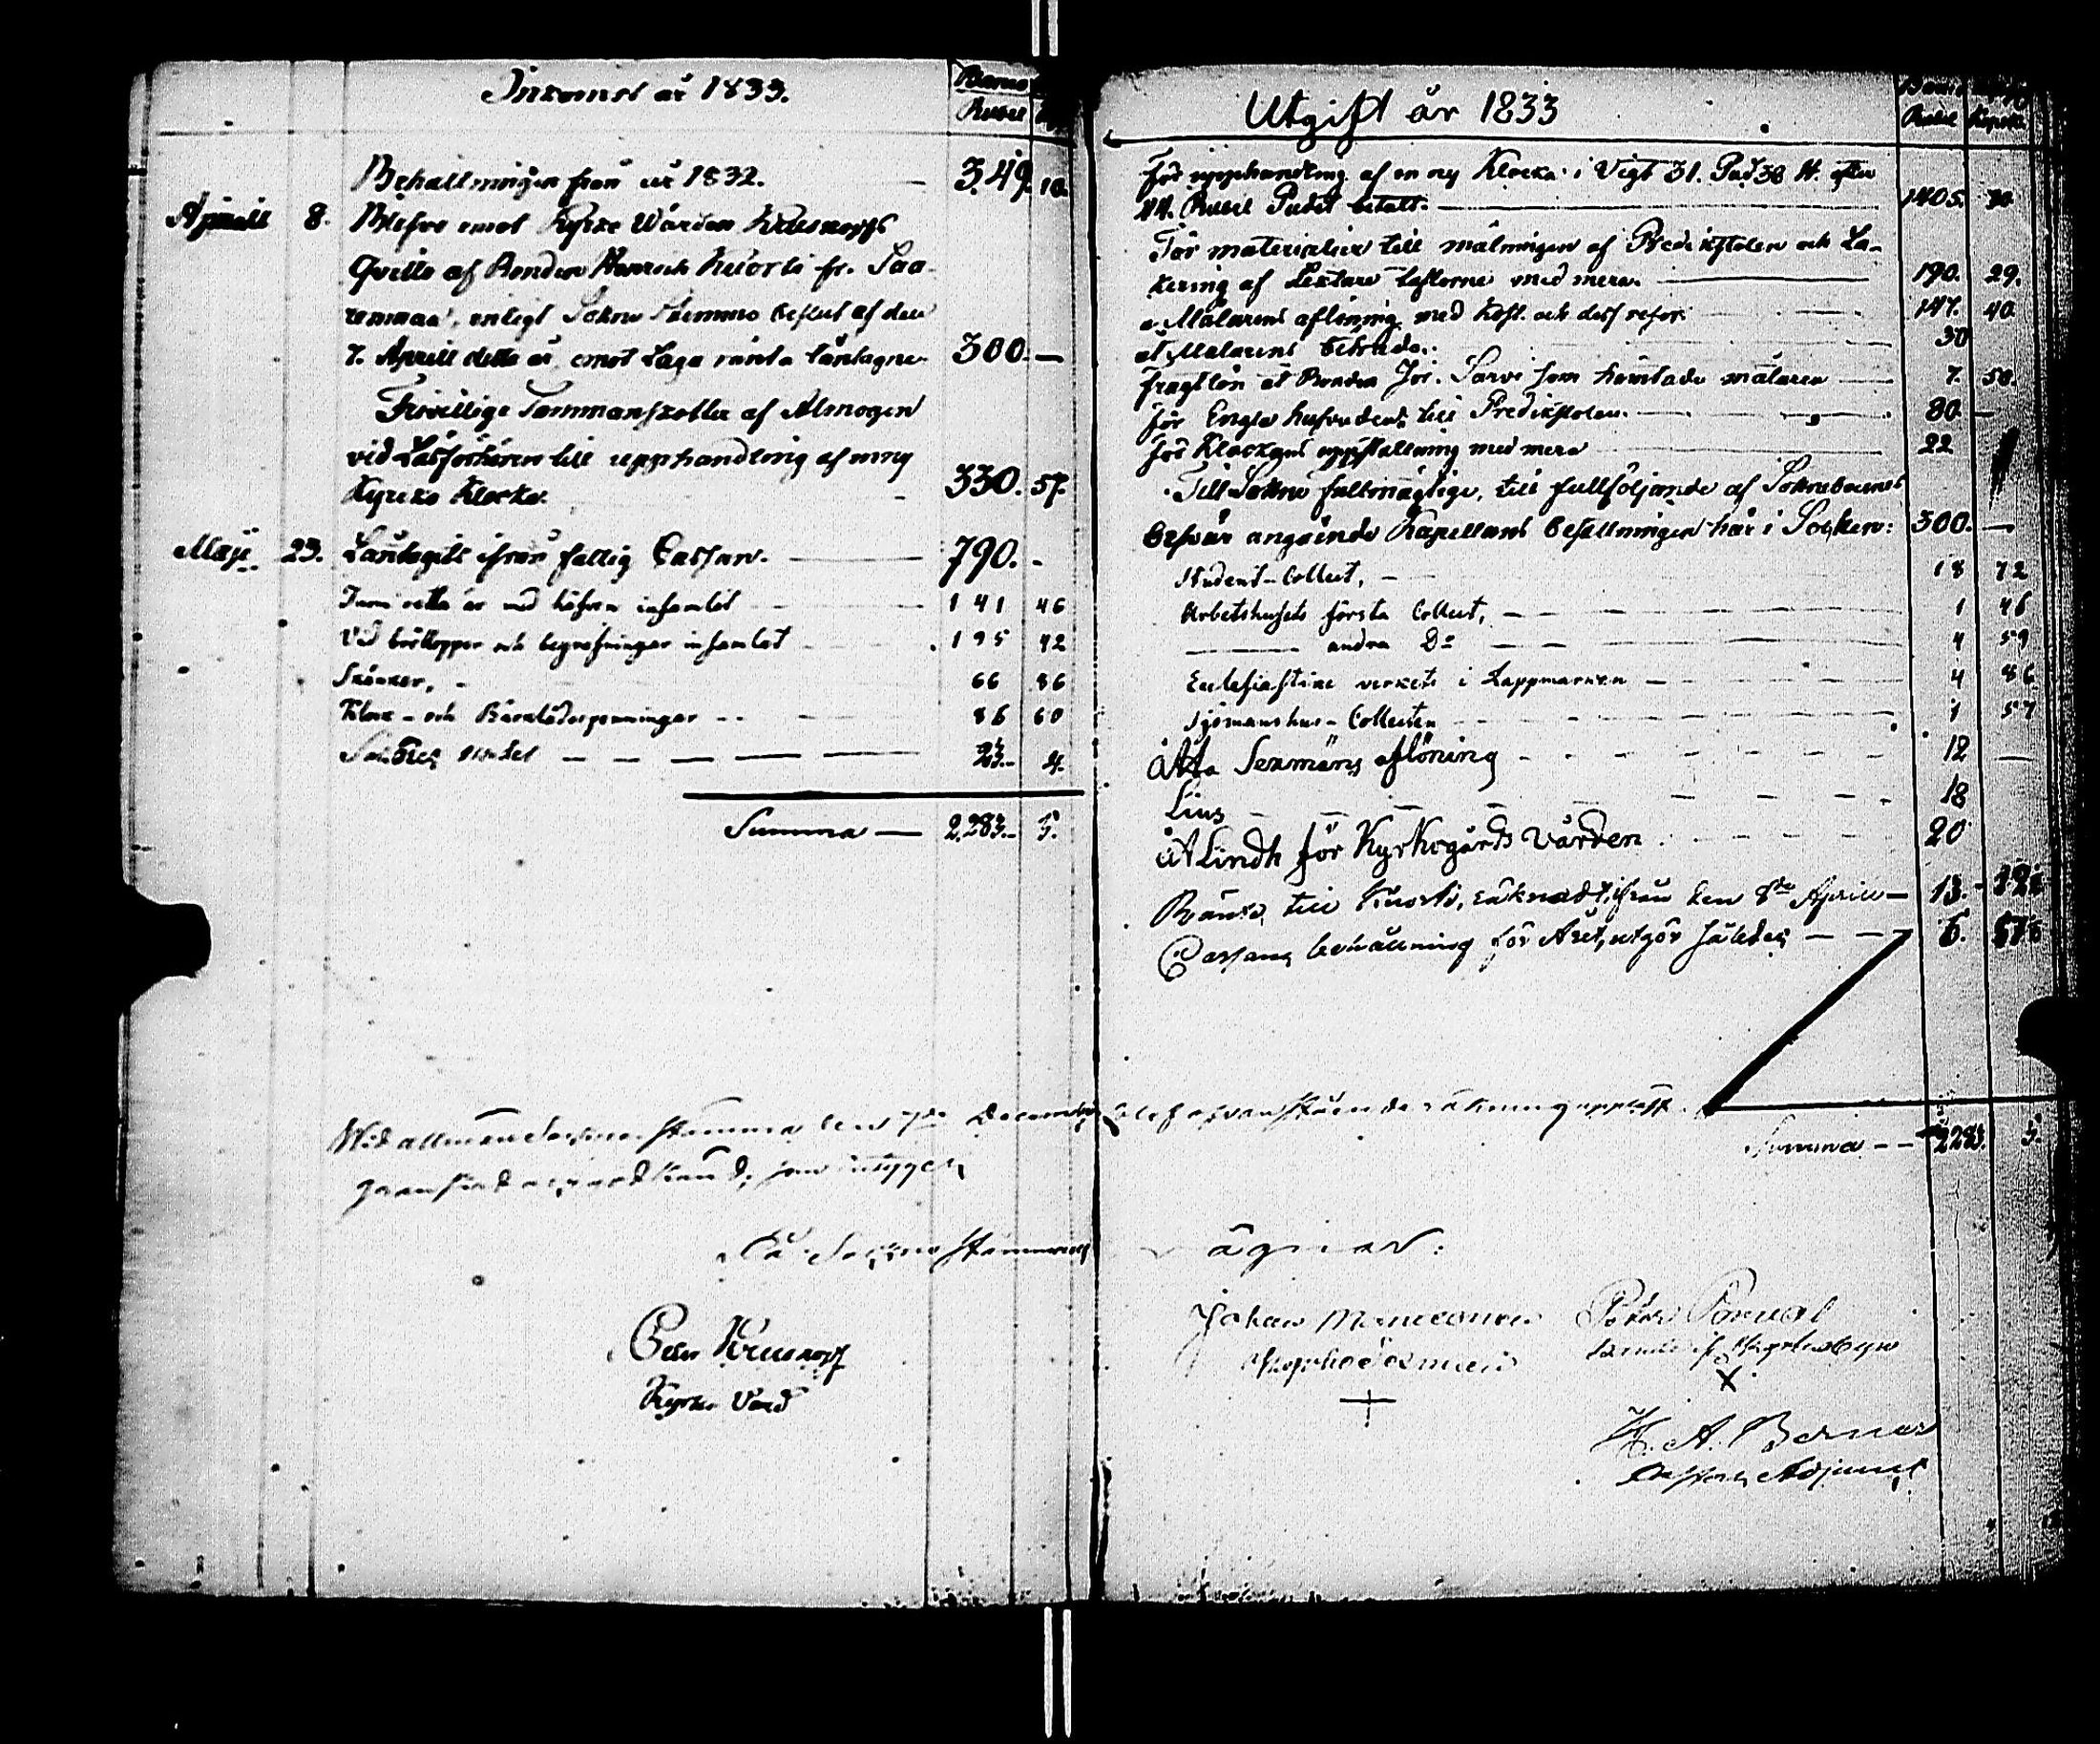 Inkomst år 1833.
Banco
Rubel
Behållningen från år 1832. — 349. 10.
Aprill 8. Blefvo emot Kyrko Wärden Kruskopfs
Qvitto af Bonden Henrich Kuorti fr. Saa-
renmaa, enligt Sokne Stemmo beslut af den
7. Aprill detta år, emot Laga ränta låntagne 300. —
Frivillige Sammanskotter af Almogen
vid Läsförhören till upphandling af en ny
Kyrko Klocka. 330. 57.
Maji 23. Låntagits ifrån fattig Cassan. — 790. -
Inom detta år med håfven insamlat 141 46
Vid bröllopper och begrafningar insamlat 195 42
Skänker, - 66 86
Klock- och Bårklädespenningar 86 60
4.
Summa — 2,283. 5.
Utgift år 1833
Rubel Kopek
För upphandling af en ny Klocka i Vigt 31. Pud 38 ℔. efter
44. Rubel Pudet betalt. — 1405.
För materialier till målningen af Predikstolen och La-
kering af Lektare taflorne med mera. — 190. 29.
Målarens aflöning med Kost och dess resor 147. 40.
åt Målarens betrade. 30
fragtlön åt Bonden Jör. Sarvi som hämtade målaren — 7. 50.
för Engla hufvuden till Predikstolen. — 80. —
för Klockans uppställning med mera 22
Till Sokne fullmägtige, till fullföljande af Sokneboernes
besvär angående Kapellans beställningen här i Socken: 300. —
Student-Collect, - 18 72
Arbetshusets första Collect, — 1 46
— andra D:o — 4 59
Ecclesiastike verkets i Lappmarken — 4 86
Sjömanshus-Collecten 1 57
åtta Sexmäns aflöning 12 —
Ljus 18
åt Lindh för Kyrkogårds Vården 20
Ränta till Kuorti, räknadt ifrån den 8de Aprill — 13.
Cassans behållning för Året, utgör således — 5.
Summa — 2283. 5.
Wid allmän Sockne stämma den 7de December blef ofvanstående räkning uppläst,
granskad och godkänd, som intygas
På Sockne stämmans vägnar:
Petter Kruskopf
Kyrko Värd
Johan
+
Petter
X
H. A. Berner
Pastors Adjunct